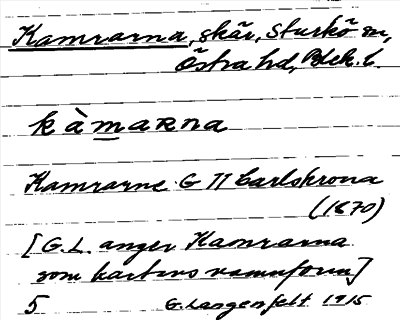 Kamrarna, skär, Sturkö sn,
Östra hd, Blek. l.
kàmarna
Kamrarne G 11 Carlskrona
(1870)
[G.L. anger Kamrarna
som kartans namnform]
5 G. Langenfelt 1915